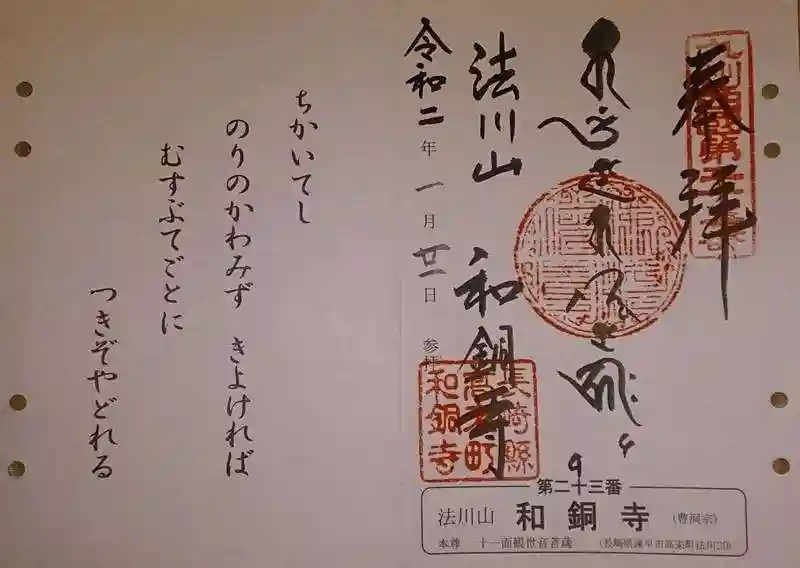 奉拝
法川山 和銅寺
令和二年一月廿一日 参拝
長崎縣
高来町
和銅寺
第二十三番
法川山 和銅寺 (曹洞宗)
本尊 十一面観世音菩薩 (長崎県諫早市高来町法川20)
ちかいてし
のりのかわみず きよければ
むすぶてごとに
つきぞやどれる